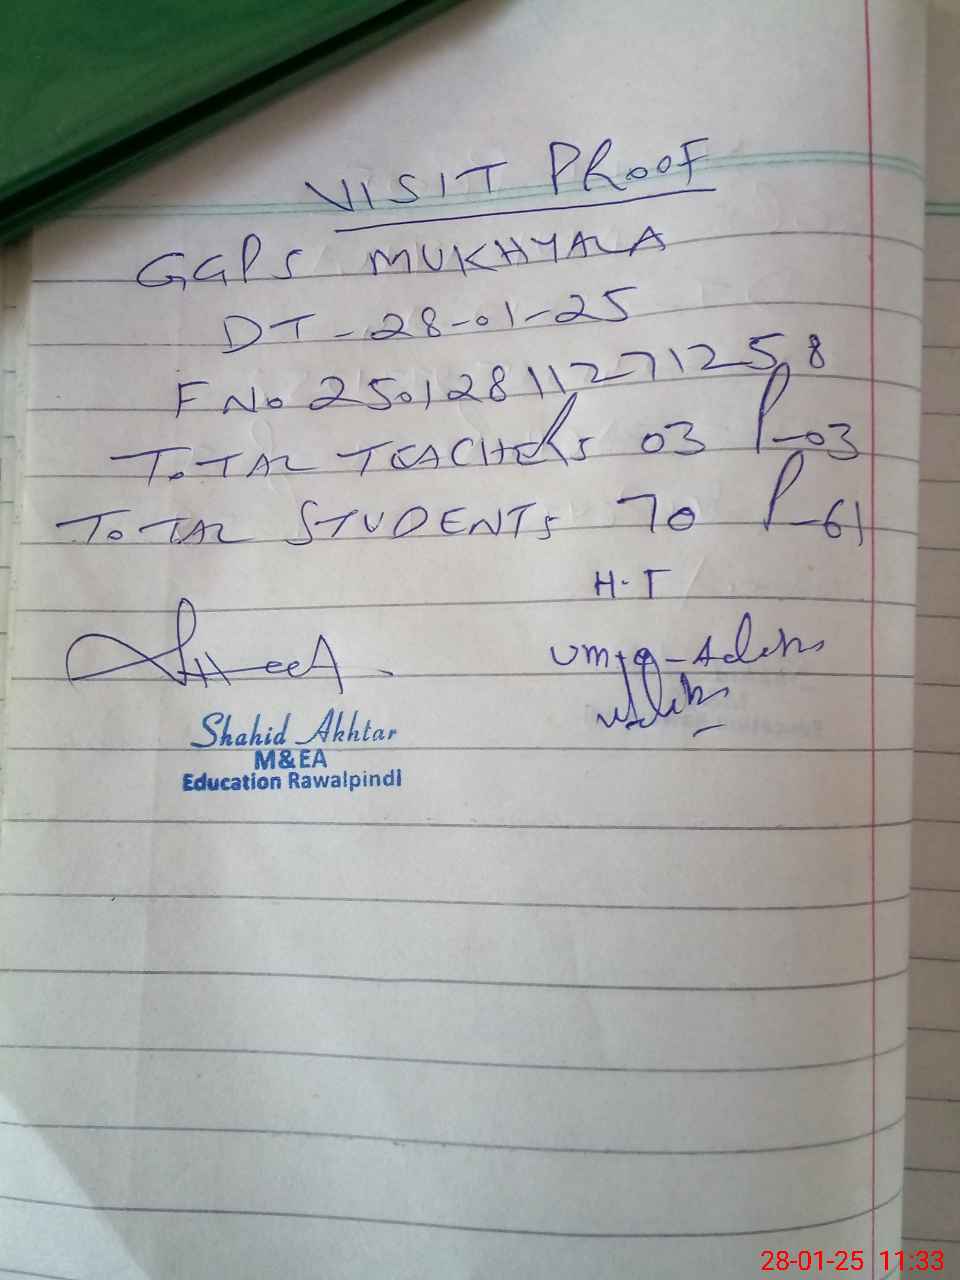 VISIT PROOF
GGPS MUKHYALA
DT - 28-01-25
F No 25012811271258
TOTAL TEACHERS 03 P-03
TOTAL STUDENTS 70 P-61
H-T
Shahid Akhtar
M&EA
Education Rawalpindi
28-01-25 11:33